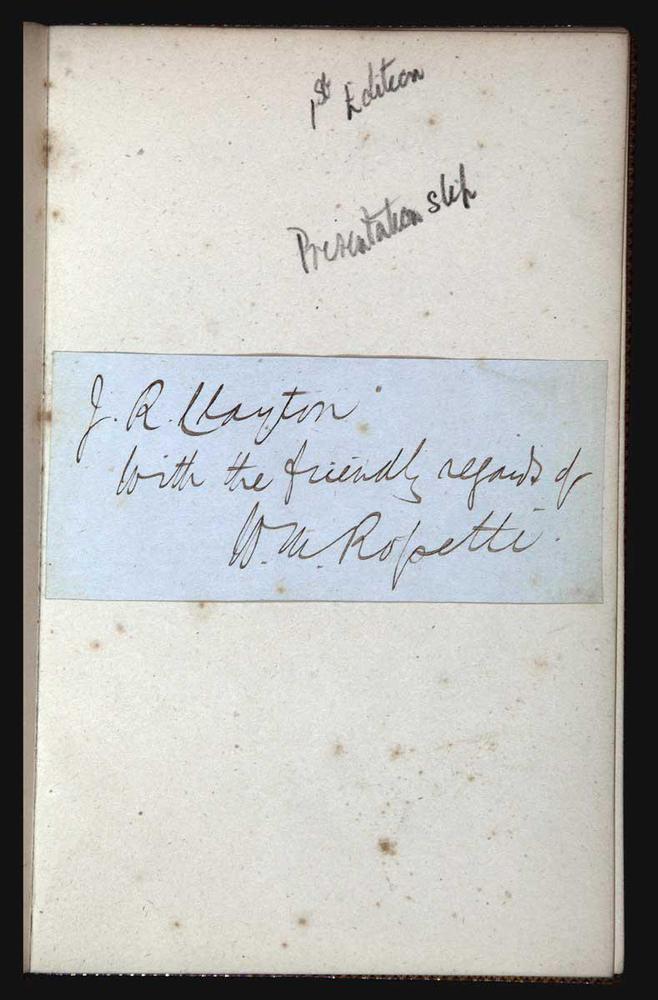 1st Edition
Presentation slip
J. R. Clayton
With the friendly regards of
W. M. Rossetti.